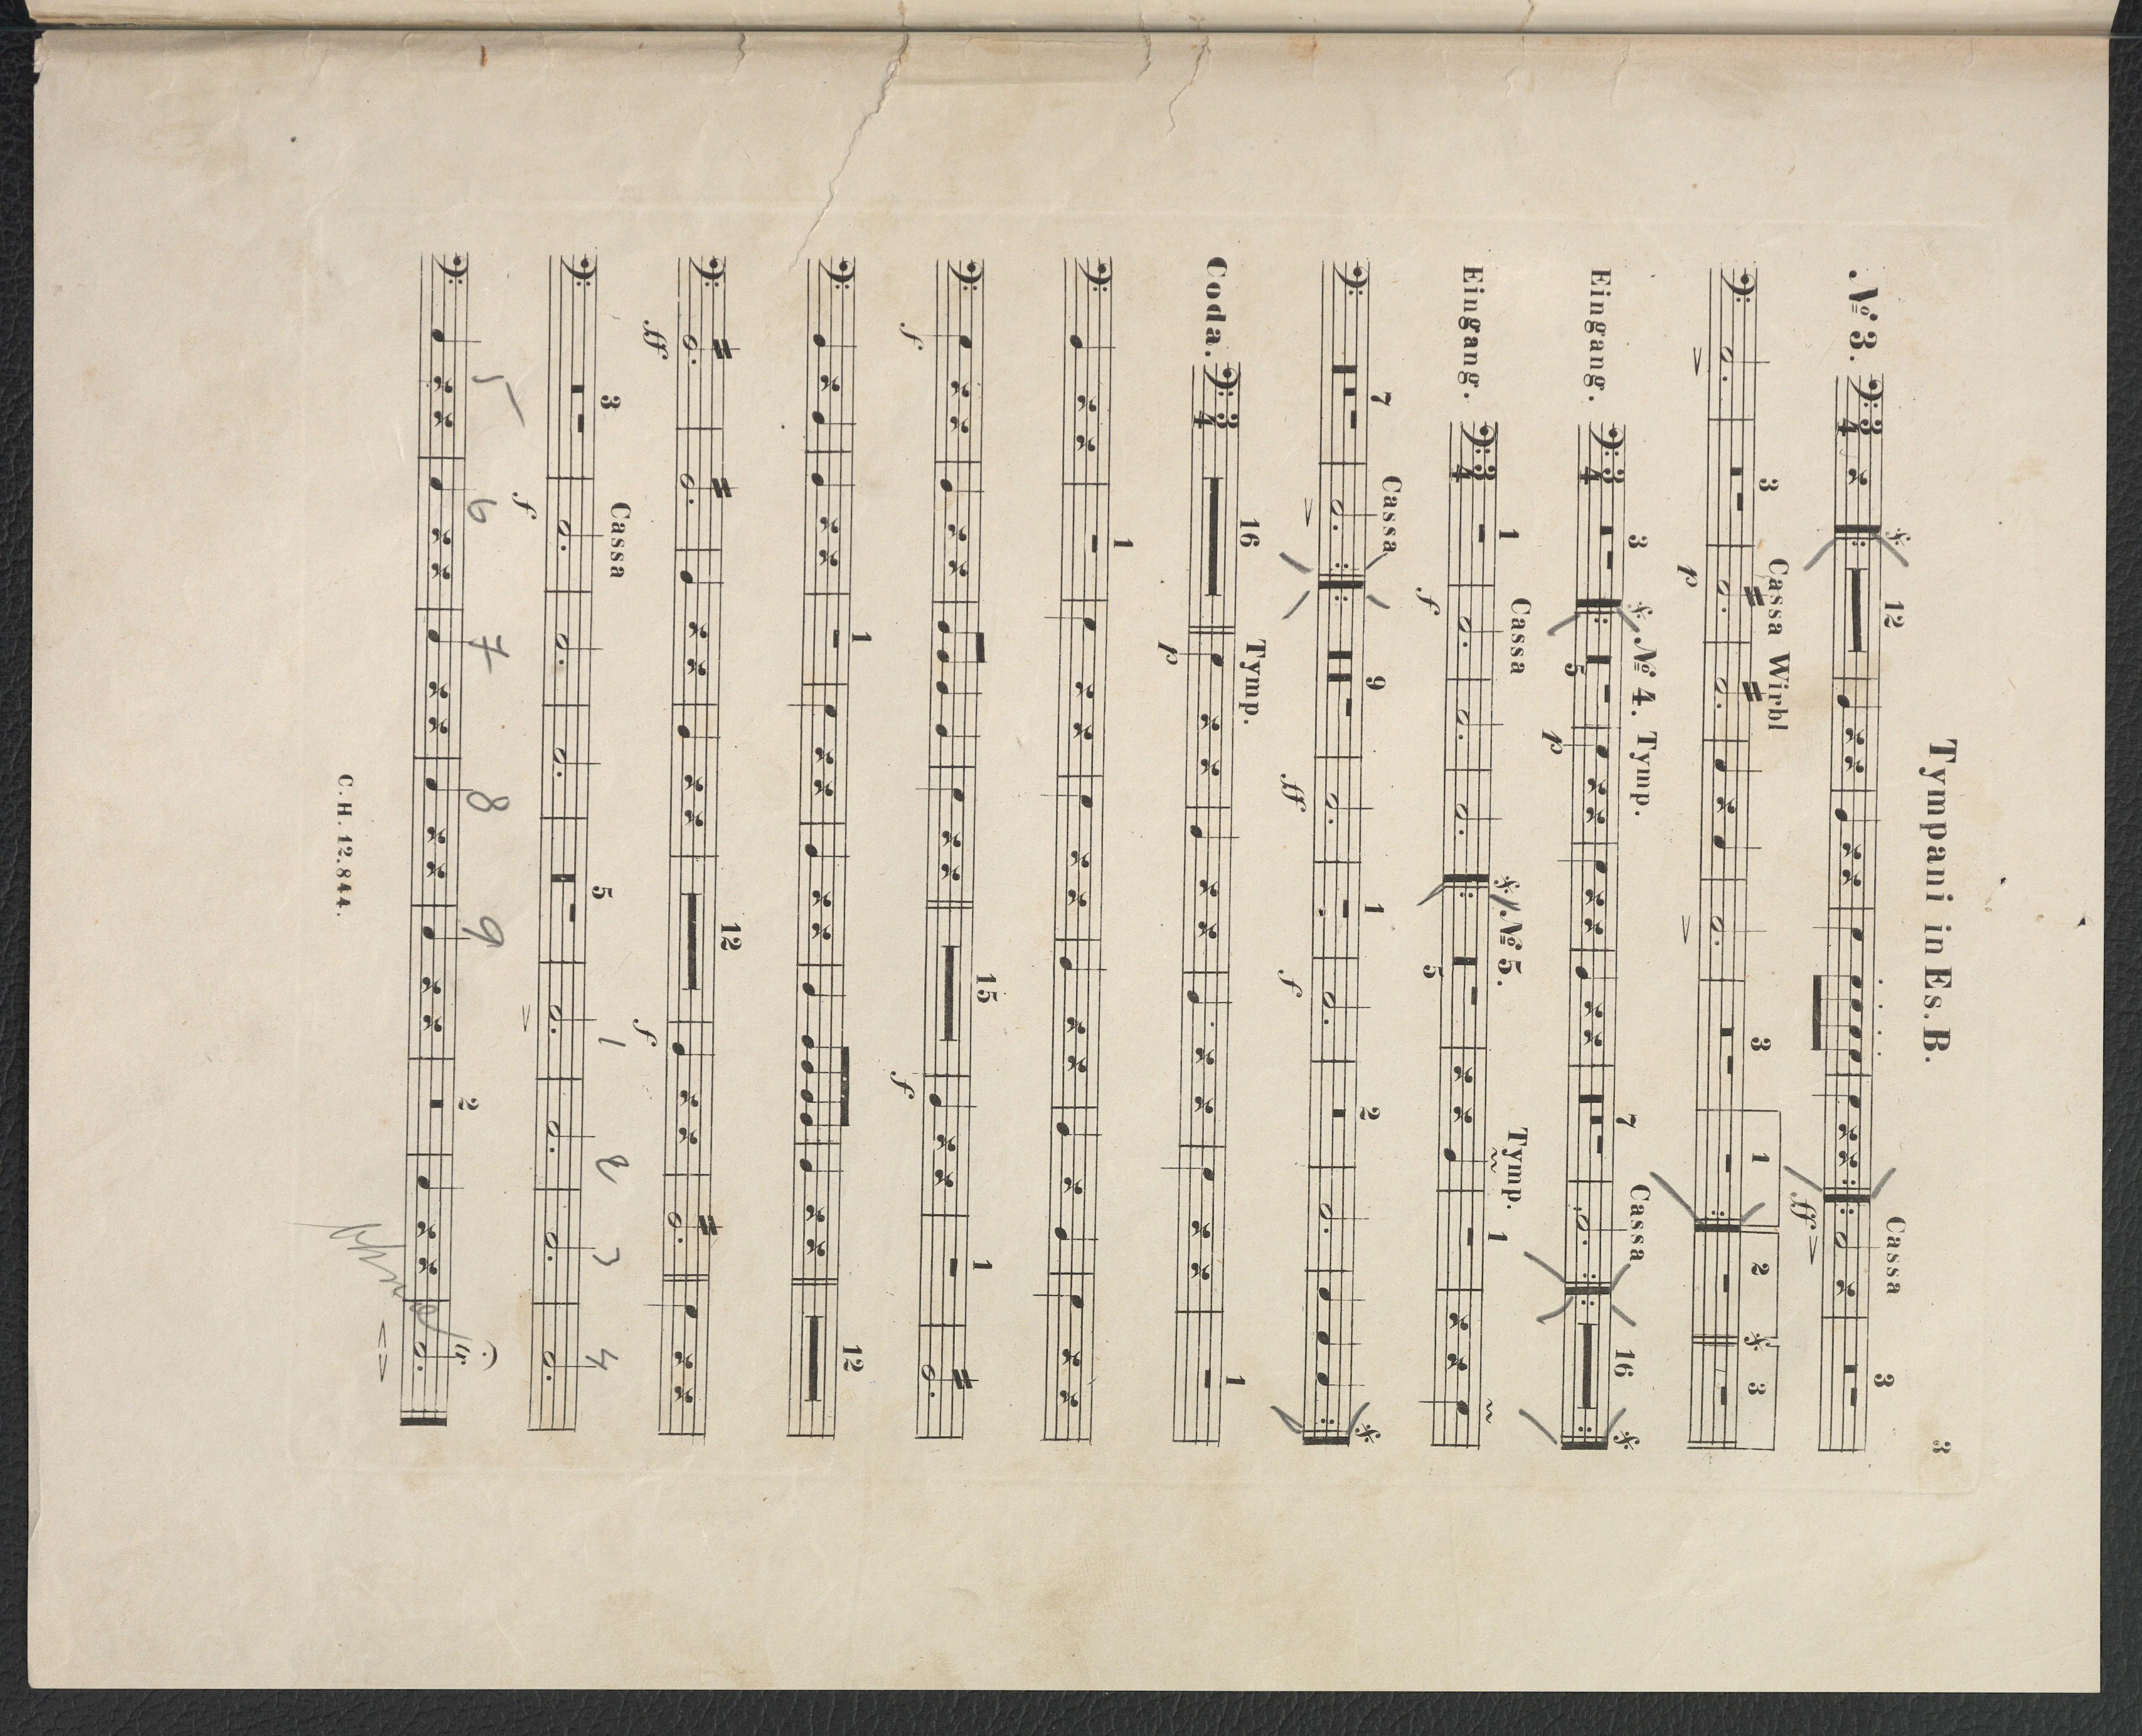 Tympani in Es. B. 3
№ 3. 3/4 12 Cassa ff 3
3 Cassa Wirbl p 3 1 2 3
Eingang. 3/4 3 № 4. Tymp. 5 p 7 Cassa 16
Eingang. 3/4 1 Cassa f № 5. 5 Tymp. 1
7 Cassa 9 ff 1 f 2
Coda. 3/4 16 Tymp. p 1
1
f 15 f 1
1 12
ff 12 f
3 Cassa f 5 1 2 3 4
5 6 7 8 9 2 tr
C. H. 12.844.